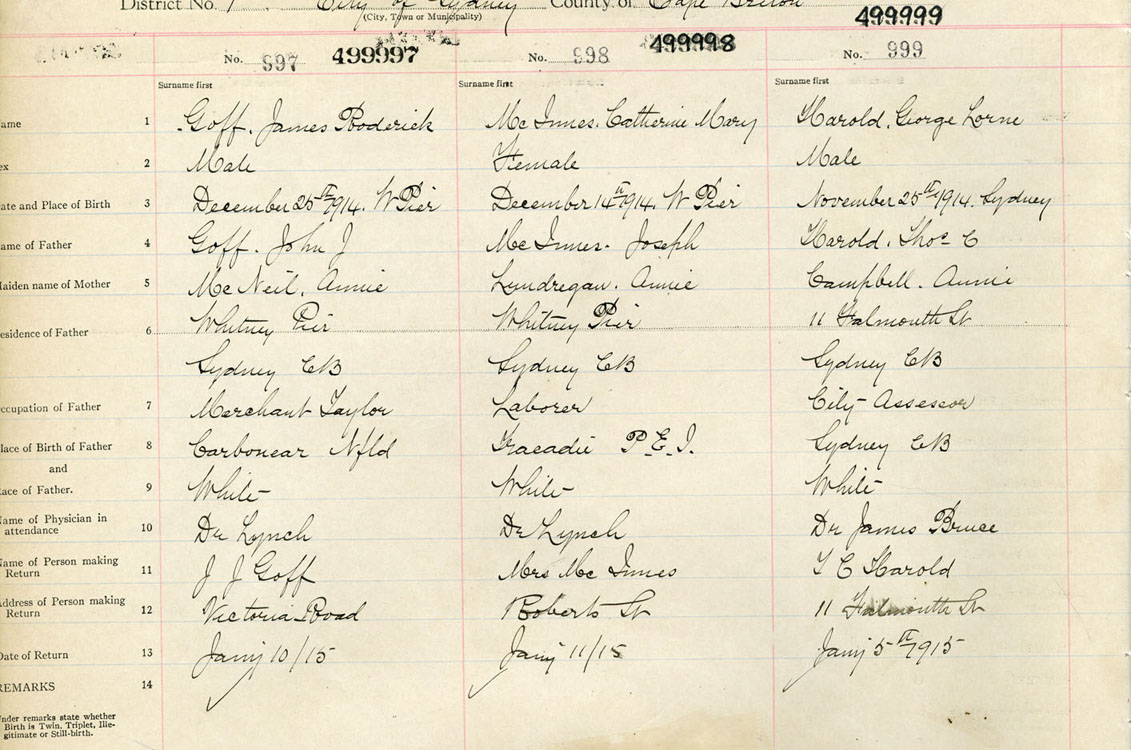 District No. 1 City of Sydney County of Cape Breton
(City, Town or Municipality)
499999
No. 997 499997 No. 998 499998 No. 999
Surname first Surname first Surname first
ame 1 Goff. James Roderick Mc Innes. Catherine Mary Harold. George Lorne
ex 2 Male Female Male
ate and Place of Birth 3 December 25th 1914. W Pier December 14th 1914. W Pier November 25th 1914. Sydney
ame of Father 4 Goff. John J Mc Innes. Joseph Harold. Thos C
aiden name of Mother 5 Mc Neil. Annie Lundregan. Annie Campbell. Annie
esidence of Father 6 Whitney Pier Whitney Pier 11 Falmouth St
Sydney CB Sydney CB Sydney CB
ccupation of Father 7 Merchant Taylor Laborer City Assessor
lace of Birth of Father 8 Carbonear Nfld Tracadie P.E.I. Sydney CB
and
ace of Father. 9 White White White
Name of Physician in
attendance 10 Dr Lynch Dr Lynch Dr James Bruce
Name of Person making
Return 11 J J Goff Mrs Mc Innes T C Harold
Address of Person making
Return 12 Victoria Road Roberts St 11 Falmouth St
Date of Return 13 Jany 10/15 Jany 11/15 Jany 5th 1915
REMARKS 14
nder remarks state whether
Birth is Twin, Triplet, Ille-
gitimate or Still-birth.